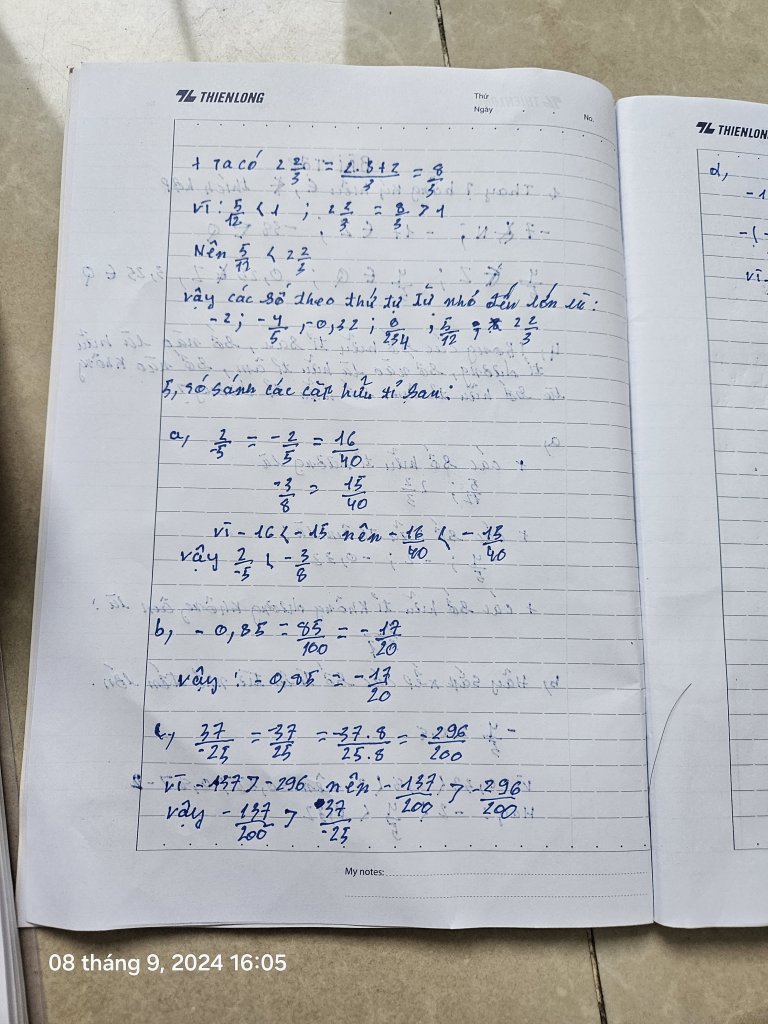 THIENLONG
Thứ
Ngày
No.
+ Ta có 2 2/3 = 2.3+2/3 = 8/3
vì : 5/12 < 1 ; 2 2/3 = 8/3 > 1
Nên 5/12 < 2 2/3
vậy các số theo thứ tự từ nhỏ đến lớn là :
-2 ; -4/5 ; -0,32 ; 0/234 ; 5/12 ; 2 2/3
5, so sánh các cặp hữu tỉ sau :
a, 2/-5 = -2/5 = 16/40
-3/8 = 15/40
vì -16 < -15 nên -16/40 < -15/40
vậy 2/-5 < -3/8
b, -0,85 = 85/100 = -17/20
vậy : -0,85 = -17/20
c, 37/-25 = -37/25 = -37.8/25.8 = -296/200
vì -137 > -296 nên -137/200 > -296/200
vậy -137/200 > 37/-25
My notes:
THIENLON
d,
-1
-(
vì
08 tháng 9, 2024 16:05